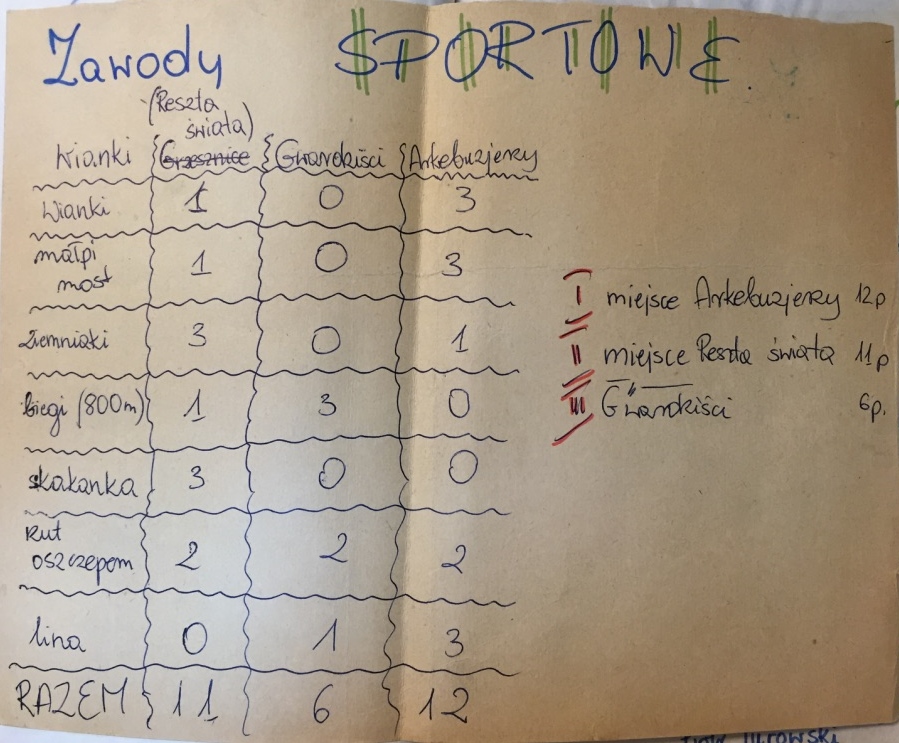 Zawody SPORTOWE.
(Reszta
świata)
Wianki Grzesznice Gwardziści Arkebuzjerzy
Wianki 1 0 3
małpi
most 1 0 3
Ziemniaki 3 0 1
biegi (800m) 1 3 0
skakanka 3 0 0
Rzut
oszczepem 2 2 2
lina 0 1 3
RAZEM 11 6 12
I miejsce Arkebuzjerzy 12p
II miejsce Reszta świata 11p
III " Gwardziści 6p.